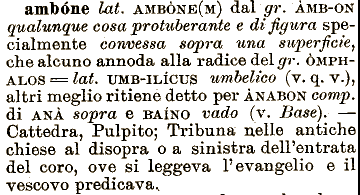 ambóne lat. AMBÒNE(M) dal gr. ÀMB-ON
qualunque cosa protuberante e di figura spe-
cialmente convessa sopra una superficie,
che alcuno annoda alla radice del gr. ÒMPH-
ALOS = lat. UMB-ILÍCUS umbelico (v. q. v.),
altri meglio ritiene detto per ÀNABON comp.
di ANÀ sopra e BAÍNO vado (v. Base). —
Cattedra, Pulpito; Tribuna nelle antiche
chiese al disopra o a sinistra dell'entrata
del coro, ove si leggeva l'evangelio e il
vescovo predicava.